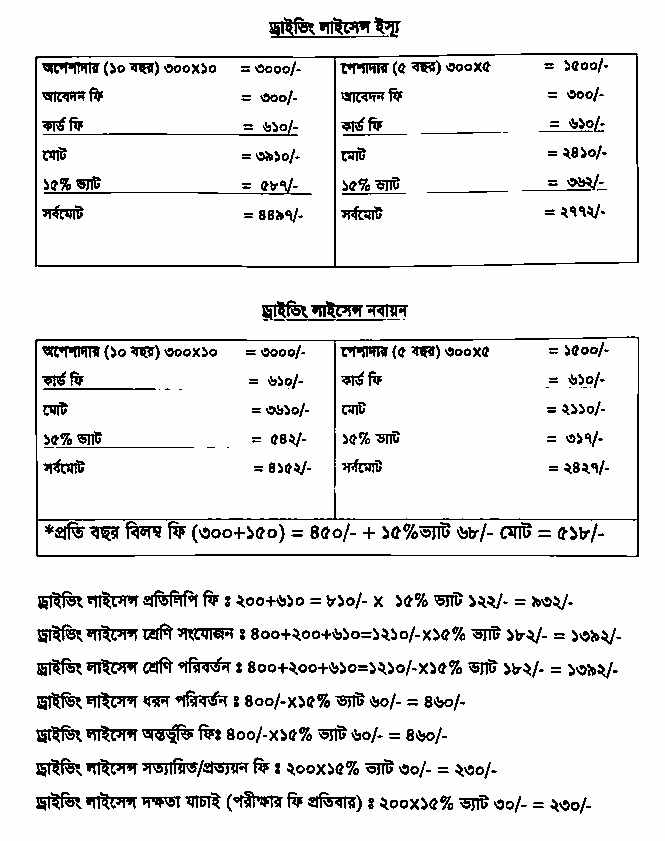 ড্রাইভিং লাইসেন্স ইস্যু
অপেশাদার (১০ বছর) ৩০০X১০ = ৩০০০/-
আবেদন ফি = ৩০০/-
কার্ড ফি = ৬১০/-
মোট = ৩৯১০/-
১৫% ভ্যাট = ৫৮৭/-
সর্বমোট = ৪৪৯৭/-
পেশাদার (৫ বছর) ৩০০X৫ = ১৫০০/-
আবেদন ফি = ৩০০/-
কার্ড ফি = ৬১০/-
মোট = ২৪১০/-
১৫% ভ্যাট = ৩৬২/-
সর্বমোট = ২৭৭২/-
ড্রাইভিং লাইসেন্স নবায়ন
অপেশাদার (১০ বছর) ৩০০X১০ = ৩০০০/-
কার্ড ফি = ৬১০/-
মোট = ৩৬১০/-
১৫% ভ্যাট = ৫৪২/-
সর্বমোট = ৪১৫২/-
পেশাদার (৫ বছর) ৩০০X৫ = ১৫০০/-
কার্ড ফি = ৬১০/-
মোট = ২১১০/-
১৫% ভ্যাট = ৩১৭/-
সর্বমোট = ২৪২৭/-
*প্রতি বছর বিলম্ব ফি (৩০০+১৫০) = ৪৫০/- + ১৫%ভ্যাট ৬৮/- মোট = ৫১৮/-
ড্রাইভিং লাইসেন্স প্রতিলিপি ফি : ২০০+৬১০ = ৮১০/- X ১৫% ভ্যাট ১২২/- = ৯৩২/-
ড্রাইভিং লাইসেন্স শ্রেণি সংযোজন : ৪০০+২০০+৬১০=১২১০/-X১৫% ভ্যাট ১৮২/- = ১৩৯২/-
ড্রাইভিং লাইসেন্স শ্রেণি পরিবর্তন : ৪০০+২০০+৬১০=১২১০/-X১৫% ভ্যাট ১৮২/- = ১৩৯২/-
ড্রাইভিং লাইসেন্স ধরন পরিবর্তন : ৪০০/-X১৫% ভ্যাট ৬০/- = ৪৬০/-
ড্রাইভিং লাইসেন্স অন্তর্ভুক্তি ফিঃ ৪০০/-X১৫% ভ্যাট ৬০/- = ৪৬০/-
ড্রাইভিং লাইসেন্স সত্যায়িত/প্রত্যয়ন ফি : ২০০X১৫% ভ্যাট ৩০/- = ২৩০/-
ড্রাইভিং লাইসেন্স দক্ষতা যাচাই (পরীক্ষার ফি প্রতিবার) : ২০০X১৫% ভ্যাট ৩০/- = ২৩০/-